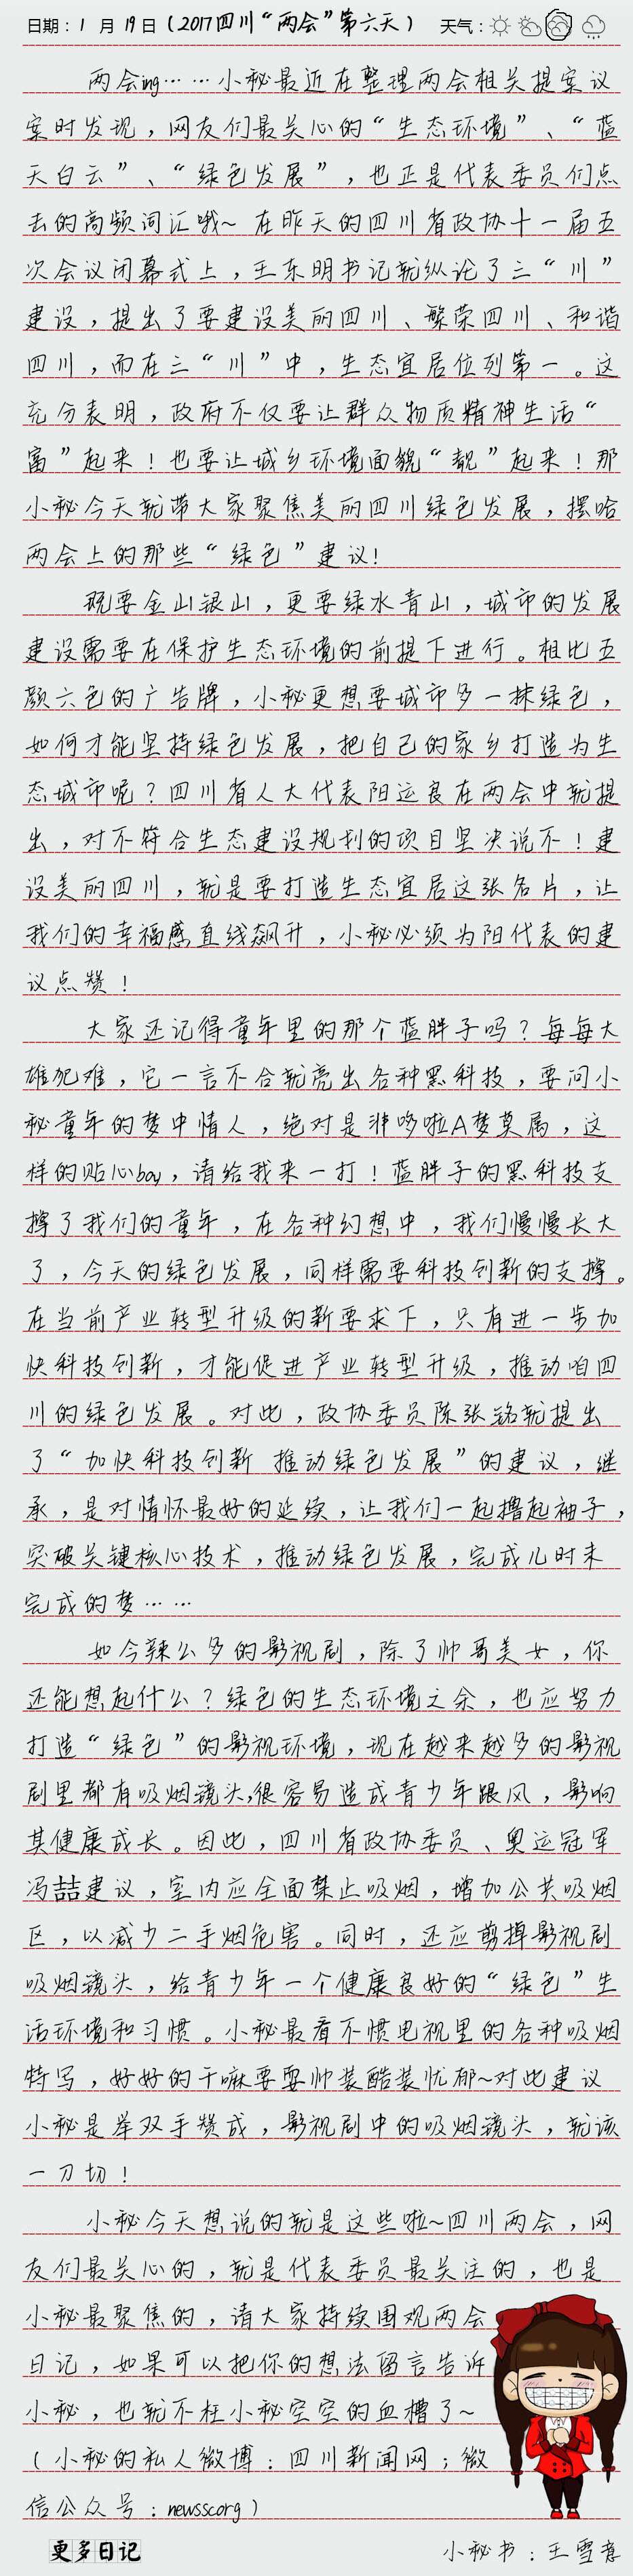 日期：1 月 19 日（2017四川“两会”第六天） 天气：
两会ing……小秘最近在整理两会相关提案议
案时发现，网友们最关心的“生态环境”、“蓝
天白云”、“绿色发展”，也正是代表委员们点
击的高频词汇哦~ 在昨天的四川省政协十一届五
次会议闭幕式上，王东明书记就纵论了三“川”
建设，提出了要建设美丽四川、繁荣四川、和谐
四川，而在三“川”中，生态宜居位列第一。这
充分表明，政府不仅要让群众物质精神生活“
富”起来！也要让城乡环境面貌“靓”起来！那
小秘今天就带大家聚焦美丽四川绿色发展，摆哈
两会上的那些“绿色”建议！
既要金山银山，更要绿水青山，城市的发展
建设需要在保护生态环境的前提下进行。相比五
颜六色的广告牌，小秘更想要城市多一抹绿色，
如何才能坚持绿色发展，把自己的家乡打造为生
态城市呢？四川省人大代表阳运良在两会中就提
出，对不符合生态建设规划的项目坚决说不！建
设美丽四川，就是要打造生态宜居这张名片，让
我们的幸福感直线飙升，小秘必须为阳代表的建
议点赞！
大家还记得童年里的那个蓝胖子吗？每每大
雄犯难，它一言不合就亮出各种黑科技，要问小
秘童年的梦中情人，绝对是非哆啦A梦莫属，这
样的贴心boy，请给我来一打！蓝胖子的黑科技支
撑了我们的童年，在各种幻想中，我们慢慢长大
了，今天的绿色发展，同样需要科技创新的支撑。
在当前产业转型升级的新要求下，只有进一步加
快科技创新，才能促进产业转型升级，推动咱四
川的绿色发展。对此，政协委员陈张铭就提出
了“加快科技创新 推动绿色发展”的建议，继
承，是对情怀最好的延续，让我们一起撸起袖子，
突破关键核心技术，推动绿色发展，完成儿时未
完成的梦……
如今辣么多的影视剧，除了帅哥美女，你
还能想起什么？绿色的生态环境之余，也应努力
打造“绿色”的影视环境，现在越来越多的影视
剧里都有吸烟镜头，很容易造成青少年跟风，影响
其健康成长。因此，四川省政协委员、奥运冠军
冯喆建议，室内应全面禁止吸烟，增加公共吸烟
区，以减少二手烟危害。同时，还应剪掉影视剧
吸烟镜头，给青少年一个健康良好的“绿色”生
活环境和习惯。小秘最看不惯电视里的各种吸烟
特写，好好的干嘛要耍帅装酷装忧郁~对此建议
小秘是举双手赞成，影视剧中的吸烟镜头，就该
一刀切！
小秘今天想说的就是这些啦~四川两会，网
友们最关心的，就是代表委员最关注的，也是
小秘最聚焦的，请大家持续围观两会
日记，如果可以把你的想法留言告诉
小秘，也就不枉小秘空空的血槽了~
（小秘的私人微博：四川新闻网；微
信公众号：newsscorg）
更多日记 小秘书：王雪意